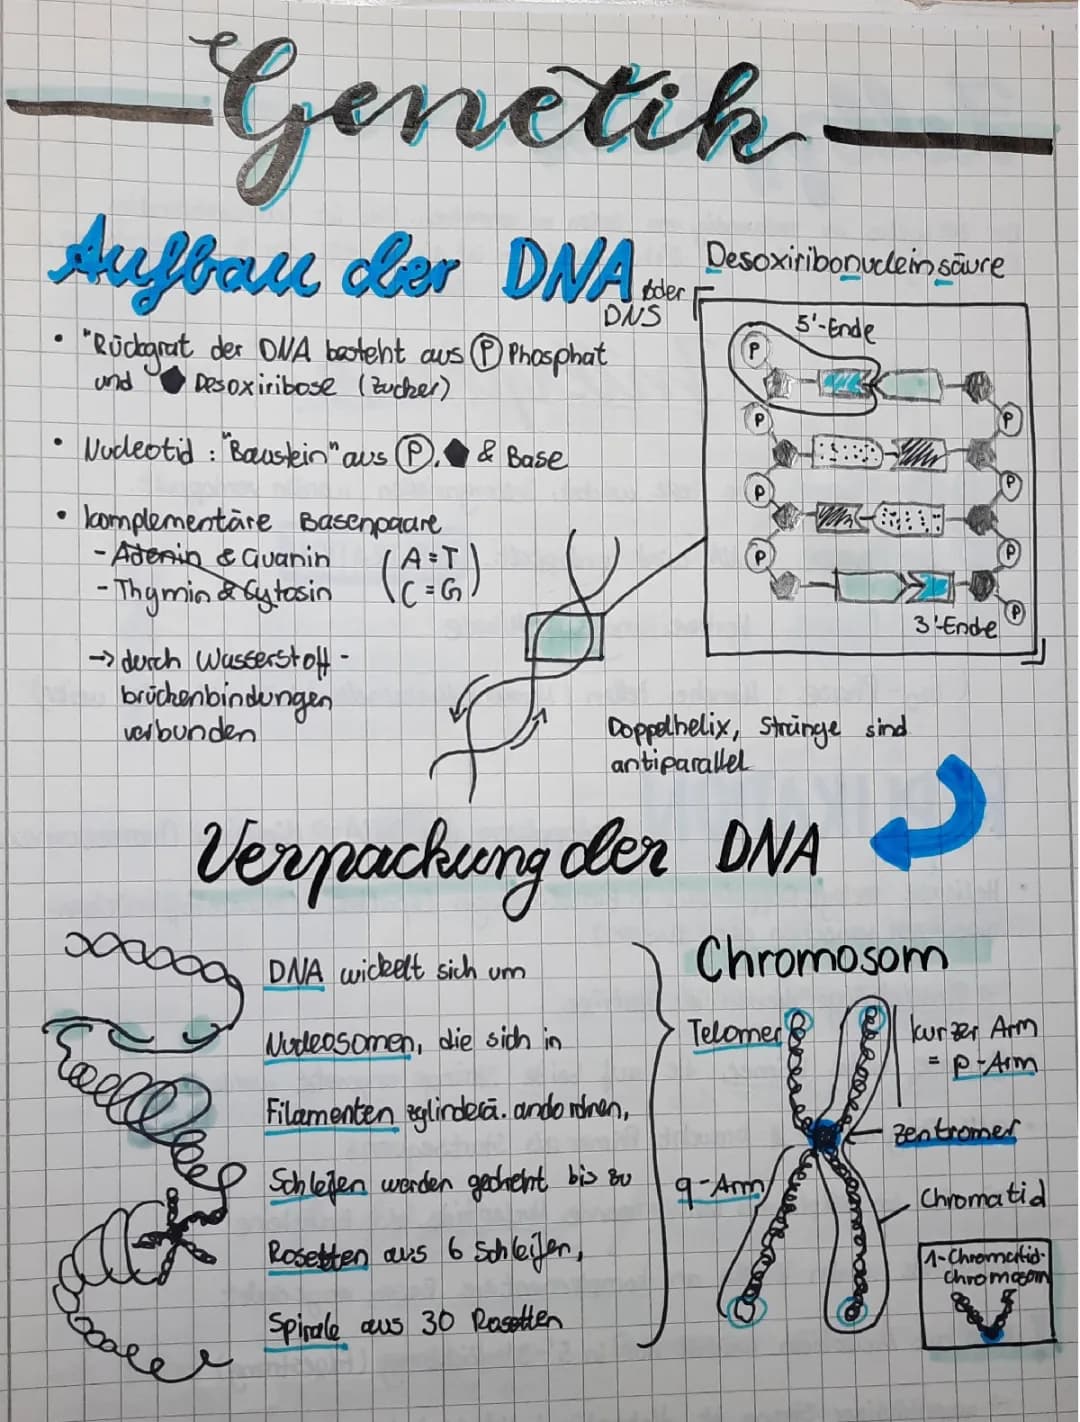 Genetik
Aufbau der DNA oder
DNS
Desoxiribonucleinsäure
• "Rückgrat der DNA besteht aus Ⓟ Phosphat
und ⬟ Desoxiribose (Zucker)
• Nucleotid : "Baustein" aus Ⓟ, ⬟ & Base
• komplementäre Basenpaare
- Adenin & Guanin
- Thymin & Cytosin
(A=T)
(C=G)
→ durch Wasserstoff-
brückenbindungen
verbunden
5'-Ende
P
P
P
P
P
P
P
P
3'-Ende
Doppelhelix, Stränge sind
antiparallel
Verpackung der DNA
DNA wickelt sich um
Nucleosomen, die sich in
Filamenten zylinderä. andordnen,
Schleifen werden gedreht bis zu
Rosetten aus 6 Schleifen,
Spirale aus 30 Rosetten
Chromosom
Telomer
kurzer Arm
= p-Arm
Zentromer
q-Arm
Chromatid
1-Chromatid-
Chromosom